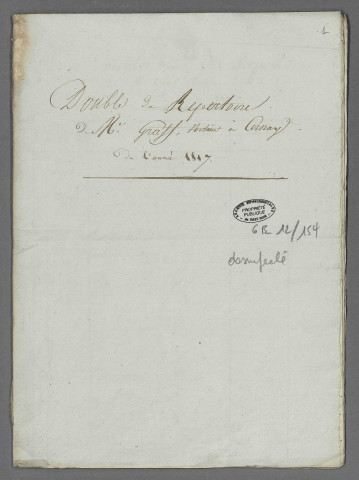 1
Double du Repertoire
de Me. Graff, Notaire à Cernay
de l'année 1817
PROPRIÉTÉ
PUBLIQUE
6E 12/154